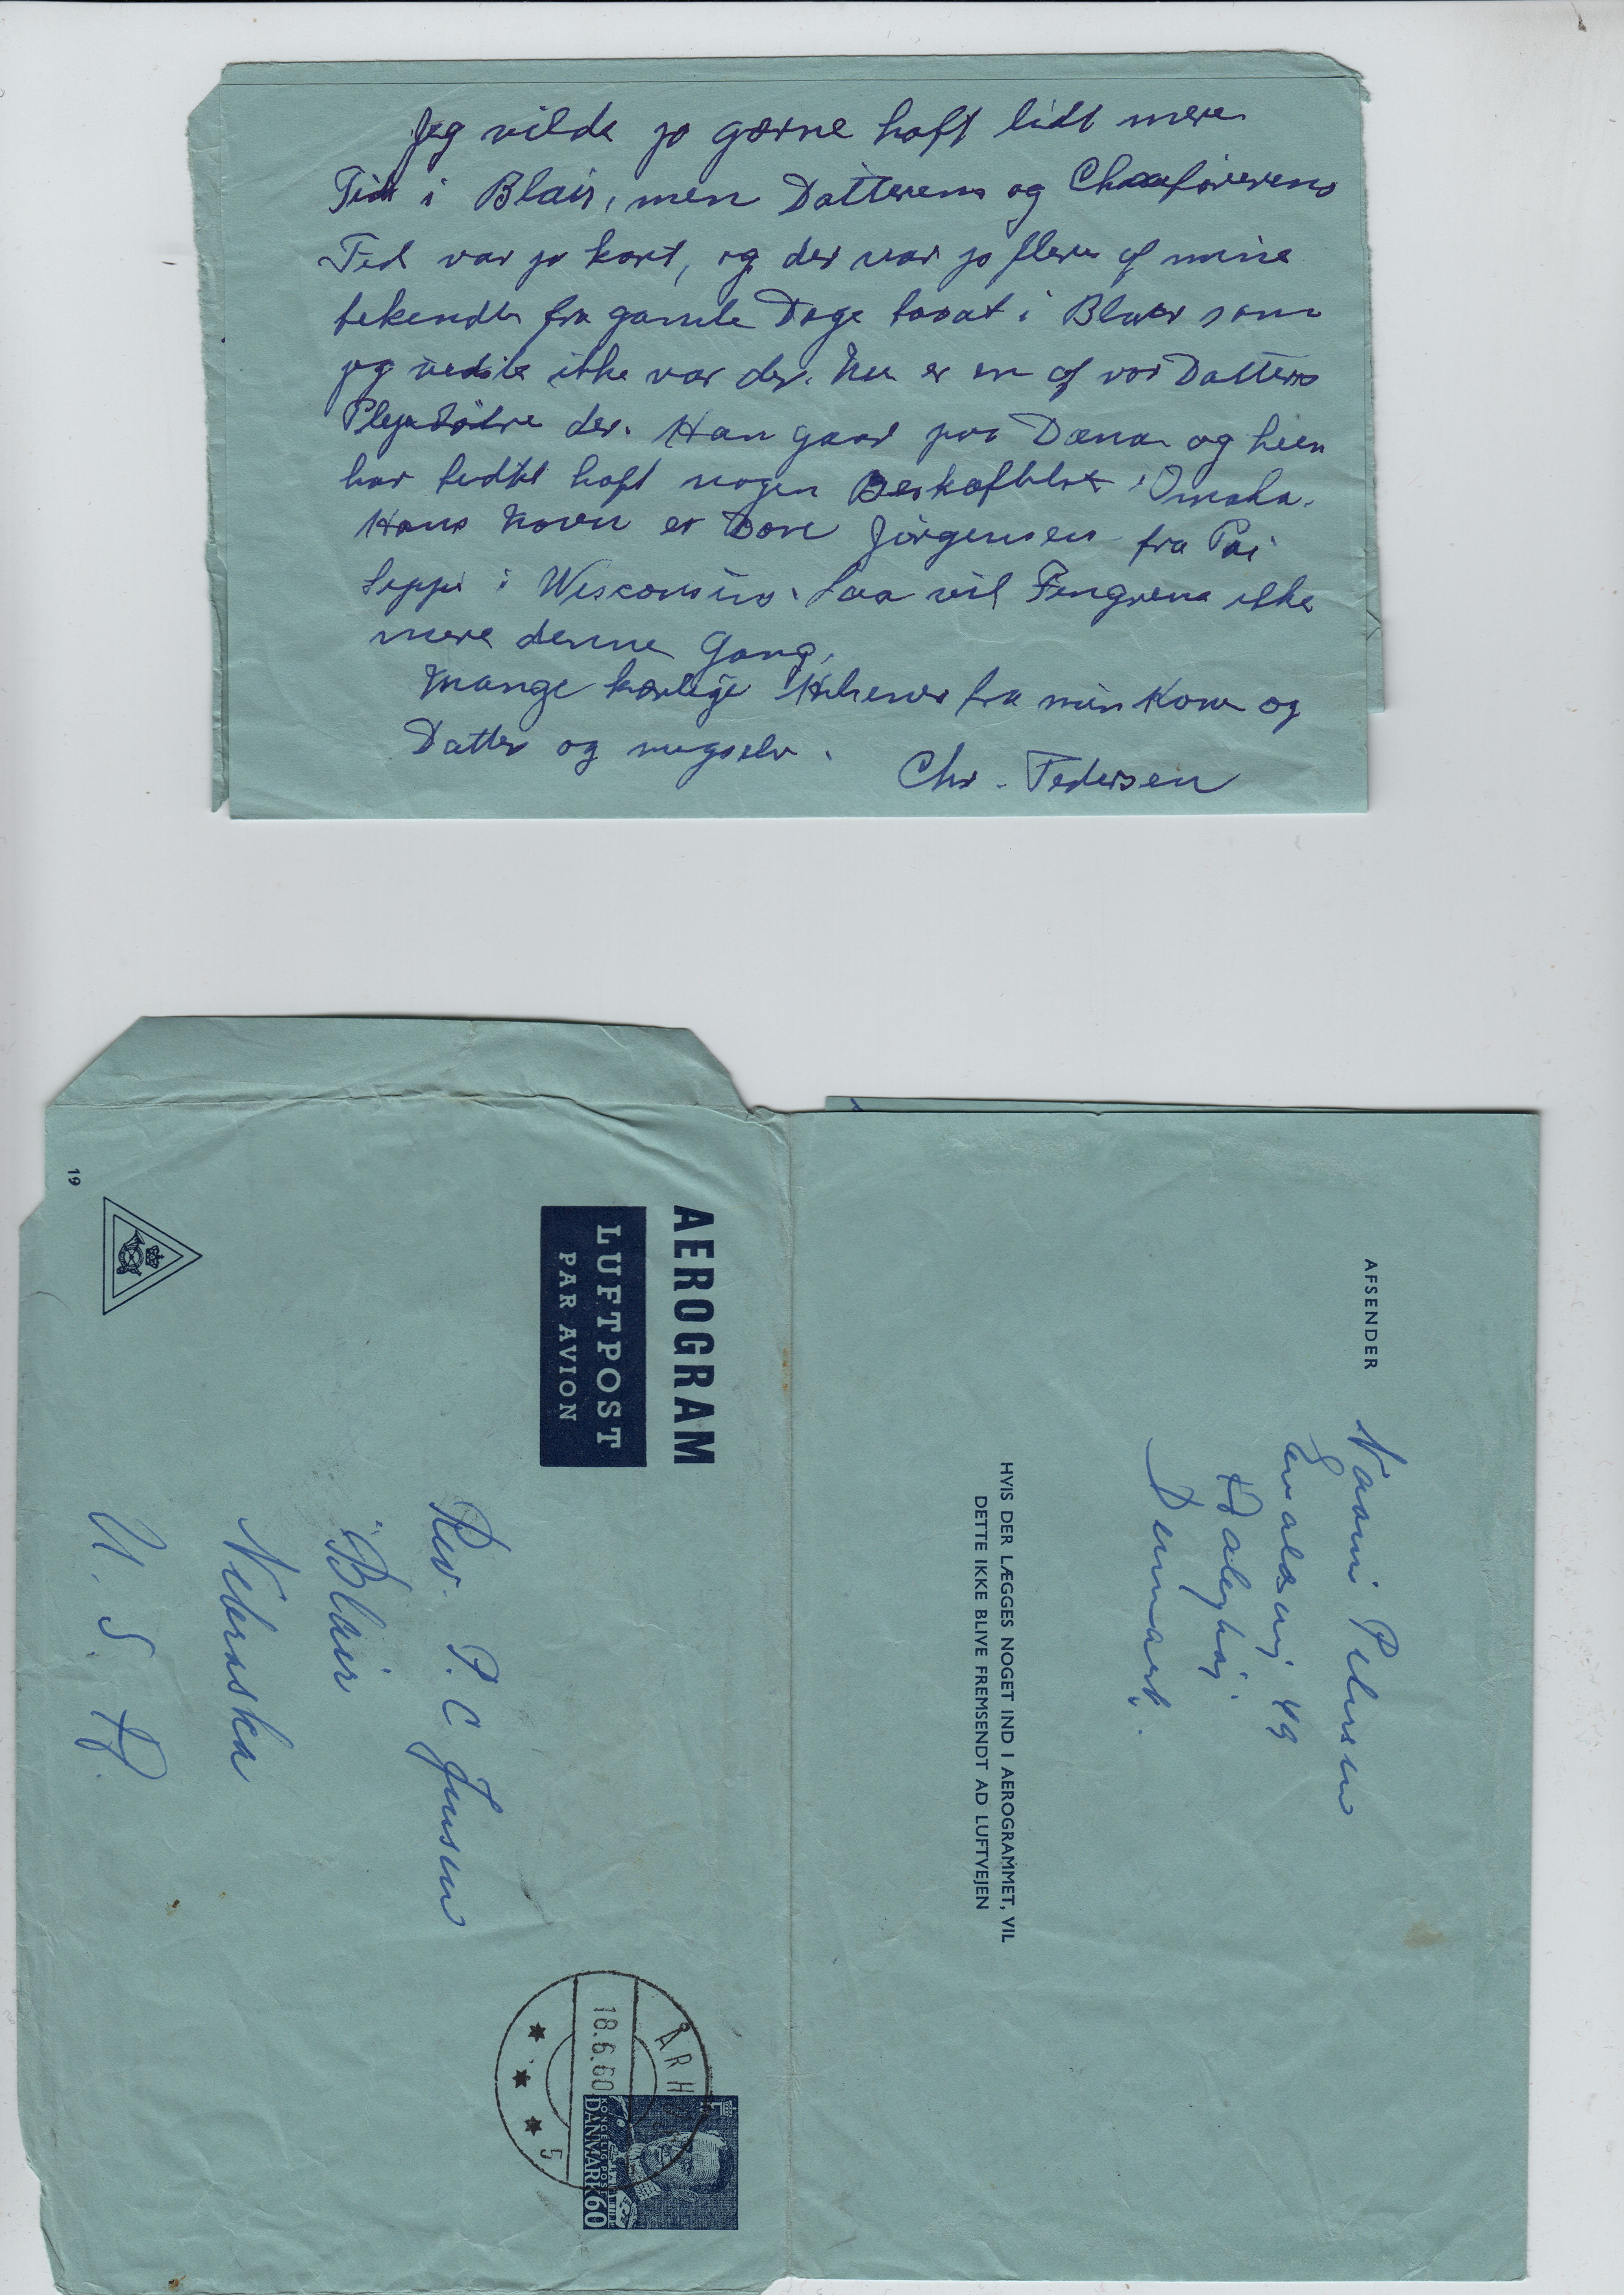 Jeg vilde jo gærne haft lidt mere
Tid i Blair, men Datterens og Chaaførerens
Tid var jo kort, og der var jo flere af mine
bekendte fra gamle Dage i Blair som
jeg vidste ikke var der. Nu er en af vor Datters
der. Han gaar paa Dana og hun
har haft nogen i Omaha.
Hans Navn er Don Jørgensen fra Poi
Sippi i Wisconsin. Saa vil Fingrene ikke
mere denne Gang.
Mange kærlige Hilsener fra min Kone og
Datter og migselv.
Chr. Pedersen
AFSENDER
Naomi Pedersen
49
Denmark.
HVIS DER LÆGGES NOGET IND I AEROGRAMMET, VIL
DETTE IKKE BLIVE FREMSENDT AD LUFTVEJEN
AEROGRAM
LUFTPOST
PAR AVION
19
Rev. P. C Jensen
Blair
Nebraska
U. S. A.
ÅRHUS
18.6.60
5
KONGELIG POST
DANMARK 60